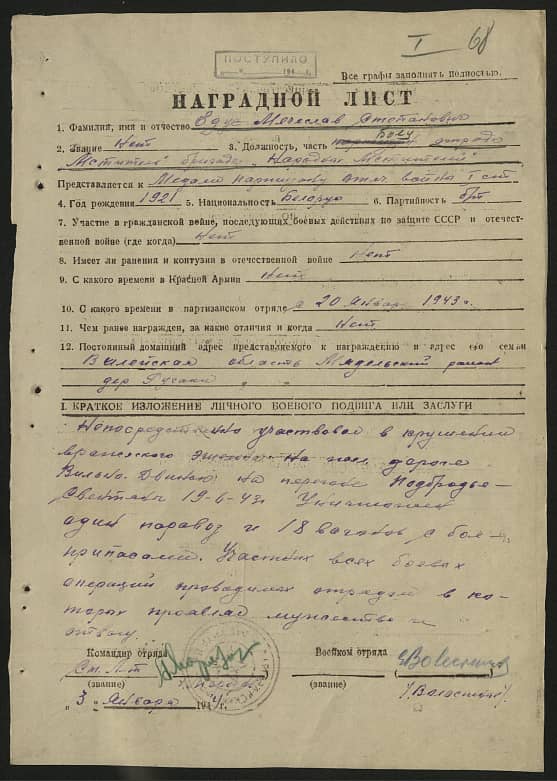 I 68
ПОСТУПИЛО
194 г.
Все графы заполнять полностью.
НАГРАДНОЙ ЛИСТ
1. Фамилия, имя и отчество Едус Мечеслав Степанович
2. Звание Нет 3. Должность, часть Боец отряда
Мститель бригада "Народных Мстителей"
Представляется к Медали партизану отеч. война I ст
4. Год рождения 1921 5. Национальность Белорус 6. Партийность б/п
7. Участие в гражданской войне, последующих боевых действиях по защите СССР и отечест-
венной войне (где когда) Нет
8. Имеет ли ранения и контузии в отечественной войне Нет
9. С какого времени в Красной Армии Нет
10. С какого времени в партизанском отряде с 20 Январ. 1943 г.
11. Чем ранее награжден, за какие отличия и когда Нет
12. Постоянный домашний адрес представляемого к награждению и адрес его семьи
Вилейская область Мядельский район
дер
I. КРАТКОЕ ИЗЛОЖЕНИЕ ЛИЧНОГО БОЕВОГО ПОДВИГА ИЛИ ЗАСЛУГИ
Непосредственно участвовал в крушении
вражеского эшелона на жел. дороге
Вильно-Двинск на перегоне Подбродье-
Свентяны 19-6-43г. Уничтожен
один паровоз и 18 вагонов с бое-
припасами. Участник всех боевых
операций проводимых отрядом в ко-
торых проявлял мужество и
отвагу.
Командир отряда Военком отряда
Ст. Л-т
(звание) (звание)
"3" Января 1944 г.